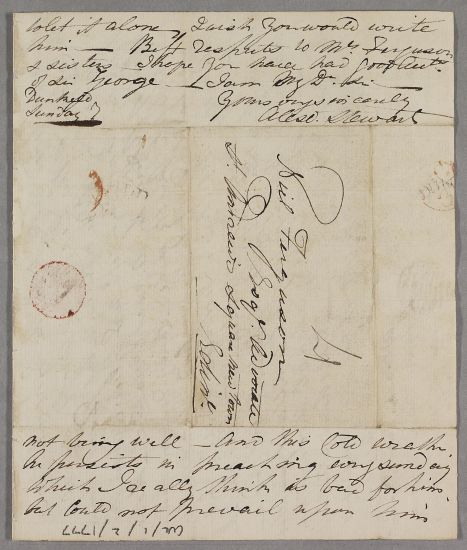 not being well – and this Cold weath
he persists in preaching every sunday
which I really think is bad for him
but could not prevail upon him
to let it alone, I wish you would write
him – Best respects to Mrs. Ferguson
& sisters I hope you have had good
of Sir George – I am My Dr. Sir
Yours very sincerely
Alexr. Stewart
Dunkeld
Sunday
Neil Ferguson
Esqr. Advocate
St. Andrew's Square New Town
Edinr.